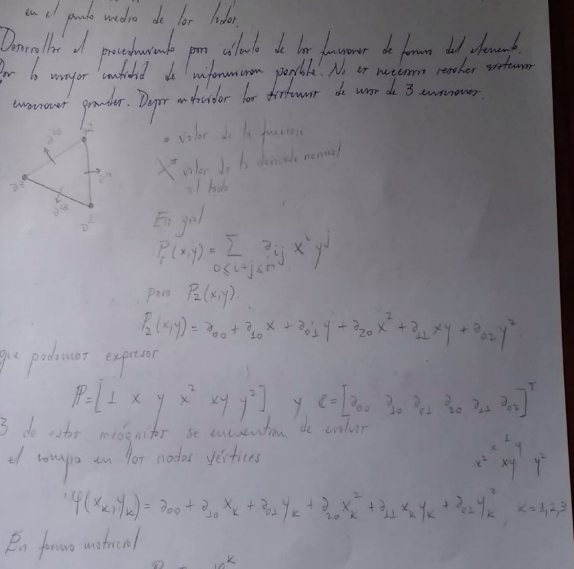 en el punto medio de los lados.
Desarrollar el procedimiento para cálculo de las funciones de forma del elemento.
Dar la mayor cantidad de información posible. No es necesario resolver sistemas
ecuaciones grandes. Dejar los sistemas de más de 3 ecuaciones.
• valor de la función
X valor de la derivada normal
al lado
En gral
P_r(x,y) = ∑_{0≤i+j≤r} a_{ij} x^i y^j
para P_2(x,y).
P_2(x,y) = a_00 + a_10 x + a_01 y + a_20 x^2 + a_11 xy + a_02 y^2
que podemos expresar
ℙ = [1 x y x^2 xy y^2] y C = [a_00 a_10 a_01 a_20 a_11 a_02]^T
3 de estas incógnitas se encuentran de evaluar
el campo en los nodos vértices
1
x y
x^2 xy y^2
φ(x_k, y_k) = a_00 + a_10 x_k + a_01 y_k + a_20 x_k^2 + a_11 x_k y_k + a_02 y_k^2, k=1,2,3
En forma matricial